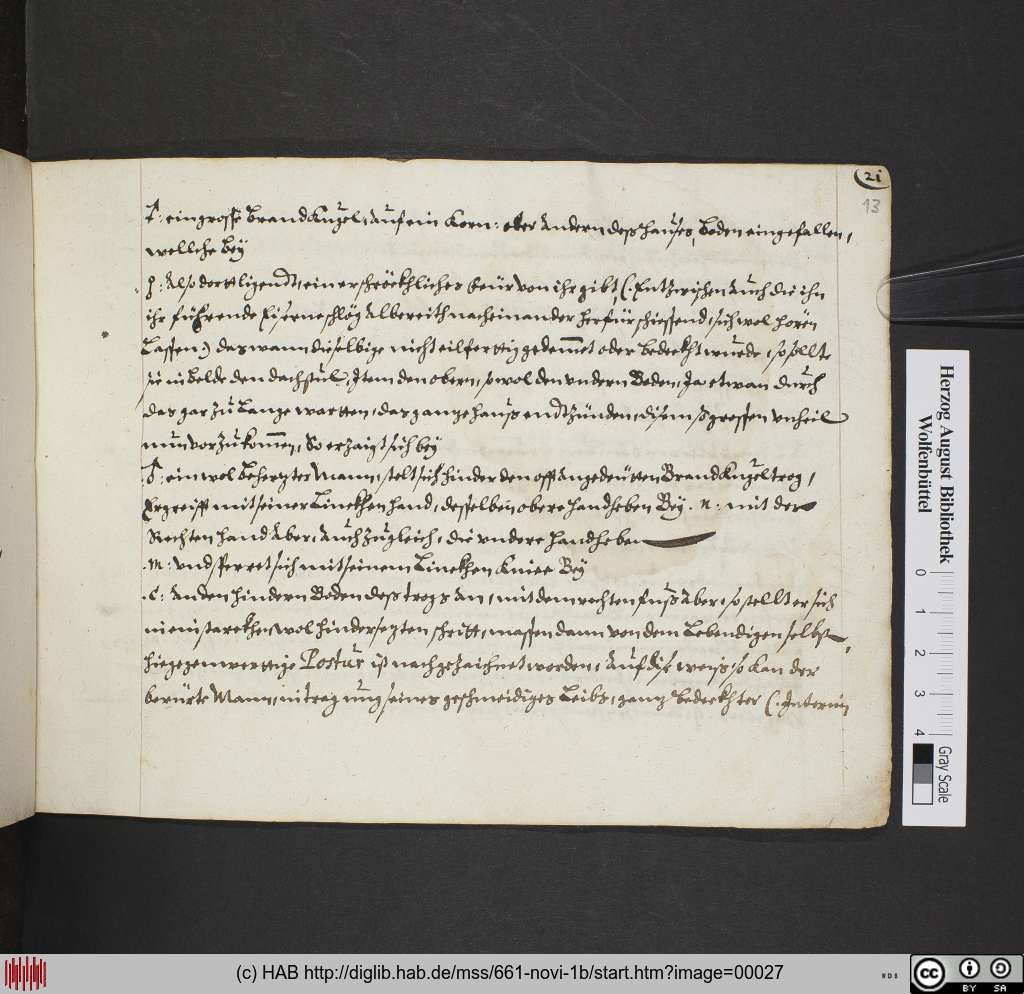 21
13
: ein grosse Brand Kugel, auf ein Korn: oder andern deß hauses, Boden eingefallen,
wellche bey
: also dort ligendt, ein erschröckhliches feur von ihr gibt, (: Entzwischen auch die ihn
ihr füehrende Eiserne schläg albereith nacheinander herfür schiessend, sich wol hören
Lassen:) das wann dieselbige nicht eilferttig gedemmet oder bedeckht wurde, so sollte
sie in belde den dachstul, Item den obern, so wol den undern Boden, Ja etwan durch
das gar zu Lange wartten, das gantze hauß endtzünden, disem so grossen unheil
nun vorzukommen, So erzaigt sich bey
: ein wol Behertzter Mann, stelt sich hinder den offt angedeütten Brand Kugeltrog,
Ergreifft mit seiner Linckhen hand, desselben obere handheben Bey .n: mit der
Rechten hand aber, auch zugleich, die undere handheben
.m: und sperret sich mit seinem Linckhen Kniee Bey
.c: an den hindern Boden deß trogs an, mit dem rechten fuß aber, so stellt er sich
in ein starckhen, wol hindersezten schritt, massen dann von dem Lebendigen selbst,
hiegegenwerttige Postur ist nachgezaichnet worden, Auf dise weiß so kan der
berürte Mann, in tragung seines geschmeidiges Leibs, gantz bedeckhter (: Interim
Herzog August Bibliothek
Wolfenbüttel
0 1 2 3 4
Gray Scale
(c) HAB http://diglib.hab.de/mss/661-novi-1b/start.htm?image=00027
WDB
cc BY SA